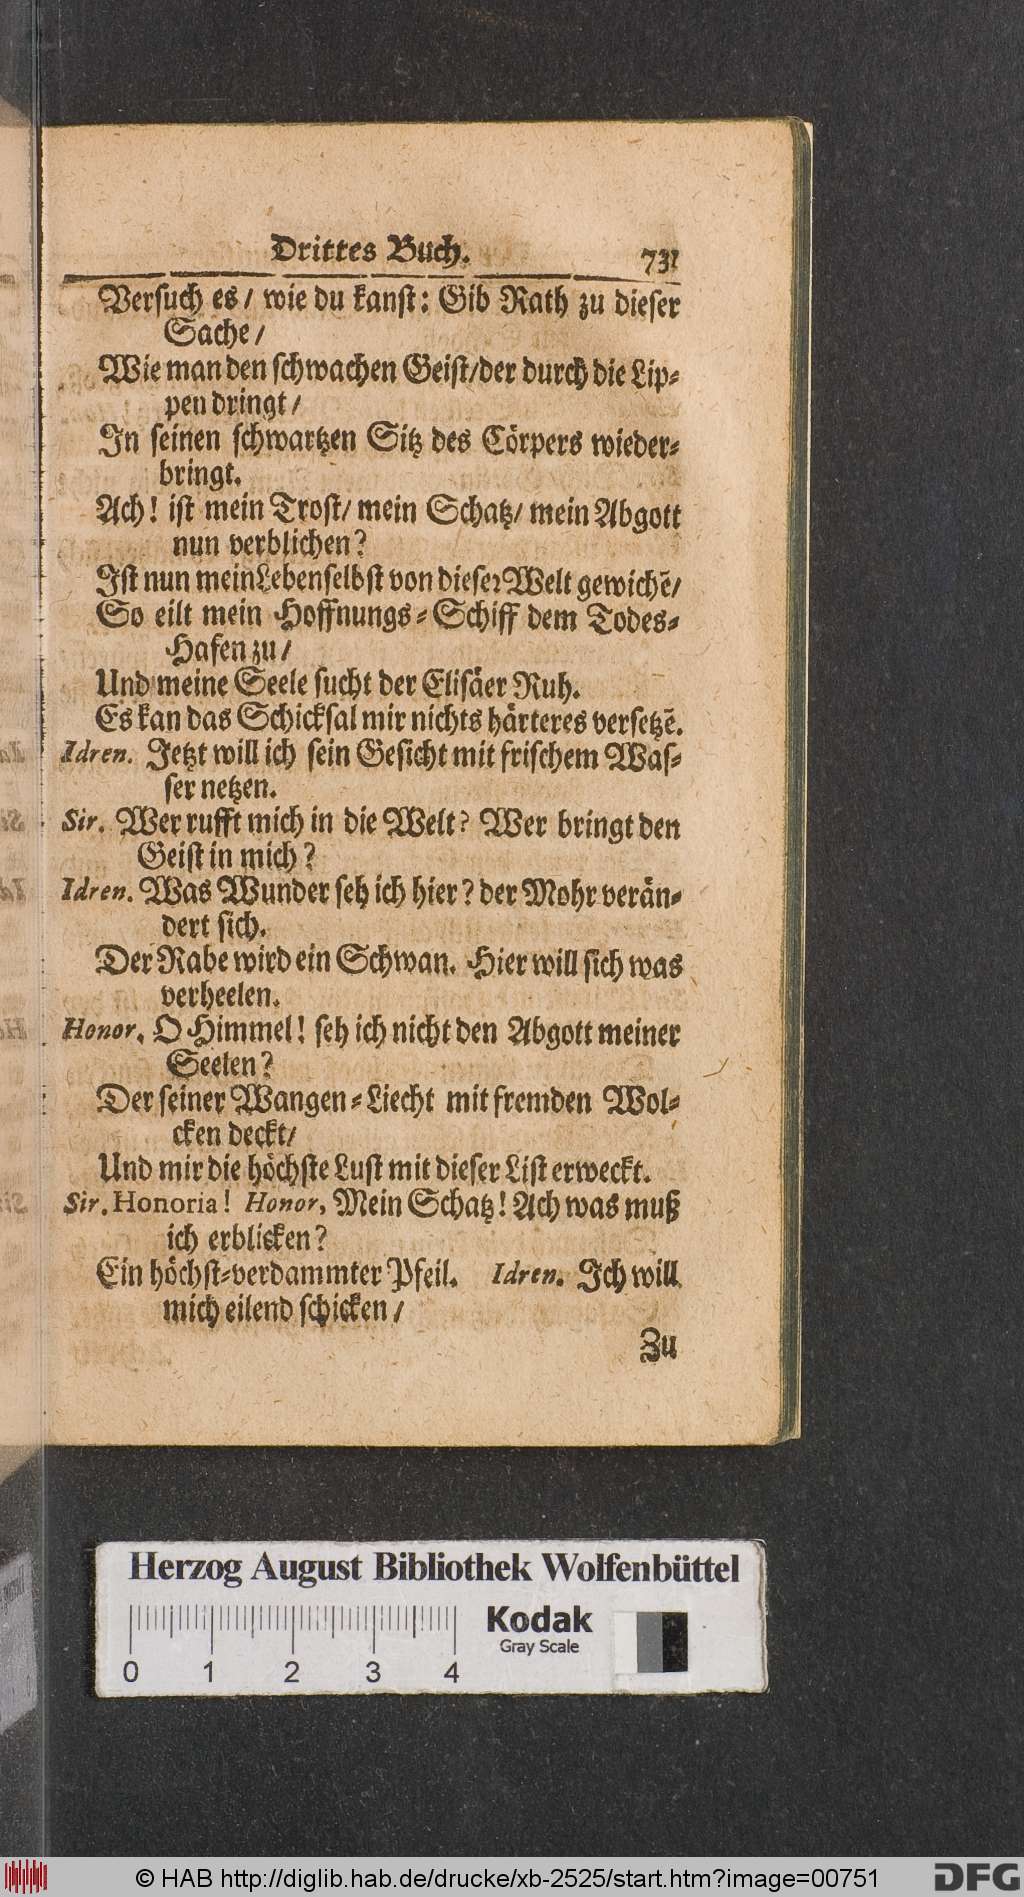 Drittes Buch. 731
Versuch es / wie du kanst: Gib Rath zu dieser
Sache /
Wie man den schwachen Geist/der durch die Lip-
pen dringt /
In seinen schwartzen Sitz des Cörpers wieder-
bringt.
Ach! ist mein Trost/ mein Schatz/ mein Abgott
nun verblichen?
Ist nun mein Leben selbst von dieser Welt gewichẽ/
So eilt mein Hoffnungs-Schiff dem Todes-
Hafen zu /
Und meine Seele sucht der Elisäer Ruh.
Es kan das Schicksal mir nichts härteres versetzẽ.
Idren. Jetzt will ich sein Gesicht mit frischem Was-
ser netzen.
Sir. Wer rufft mich in die Welt? Wer bringt den
Geist in mich?
Idren. Was Wunder seh ich hier? der Mohr verän-
dert sich.
Der Rabe wird ein Schwan. Hier will sich was
verheelen.
Honor. O Himmel! seh ich nicht den Abgott meiner
Seelen?
Der seiner Wangen-Liecht mit fremden Wol-
cken deckt/
Und mir die höchste Lust mit dieser List erweckt.
Sir. Honoria! Honor. Mein Schatz! Ach was muß
ich erblicken?
Ein höchst-verdammter Pfeil. Idren. Ich will
mich eilend schicken /
Zu
Herzog August Bibliothek Wolfenbüttel
Kodak
Gray Scale
0 1 2 3 4
© HAB http://diglib.hab.de/drucke/xb-2525/start.htm?image=00751
DFG